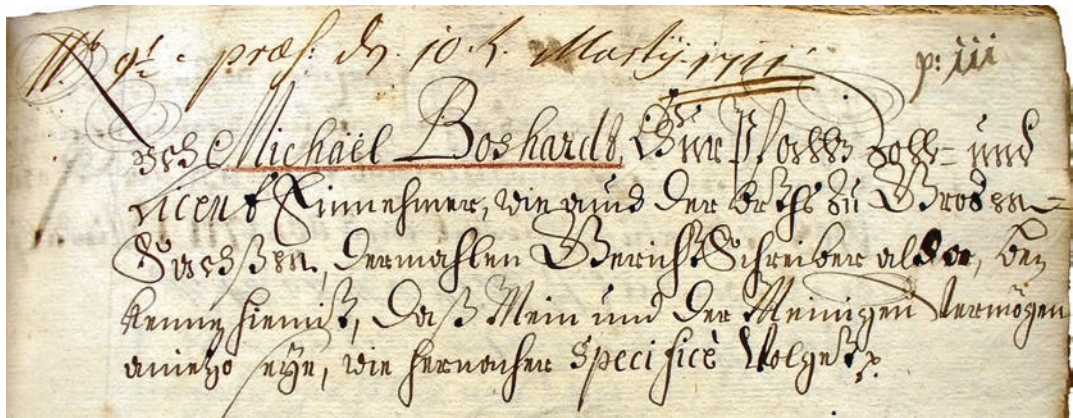 præs: d. 10. t. Martij. 1711 p: iii
Ich Michaël Boshardt Chur Pfaltz Zoll- und
Licent Einnehmer, wie auch der Orths zu Grosen-
Sachßen, dermahlen Gericht Schreiber aldar, be-
kenne hiemit, daß Mein und der Meinigen Vermögen
anietzo seye, wie hernacher Specificè Volget